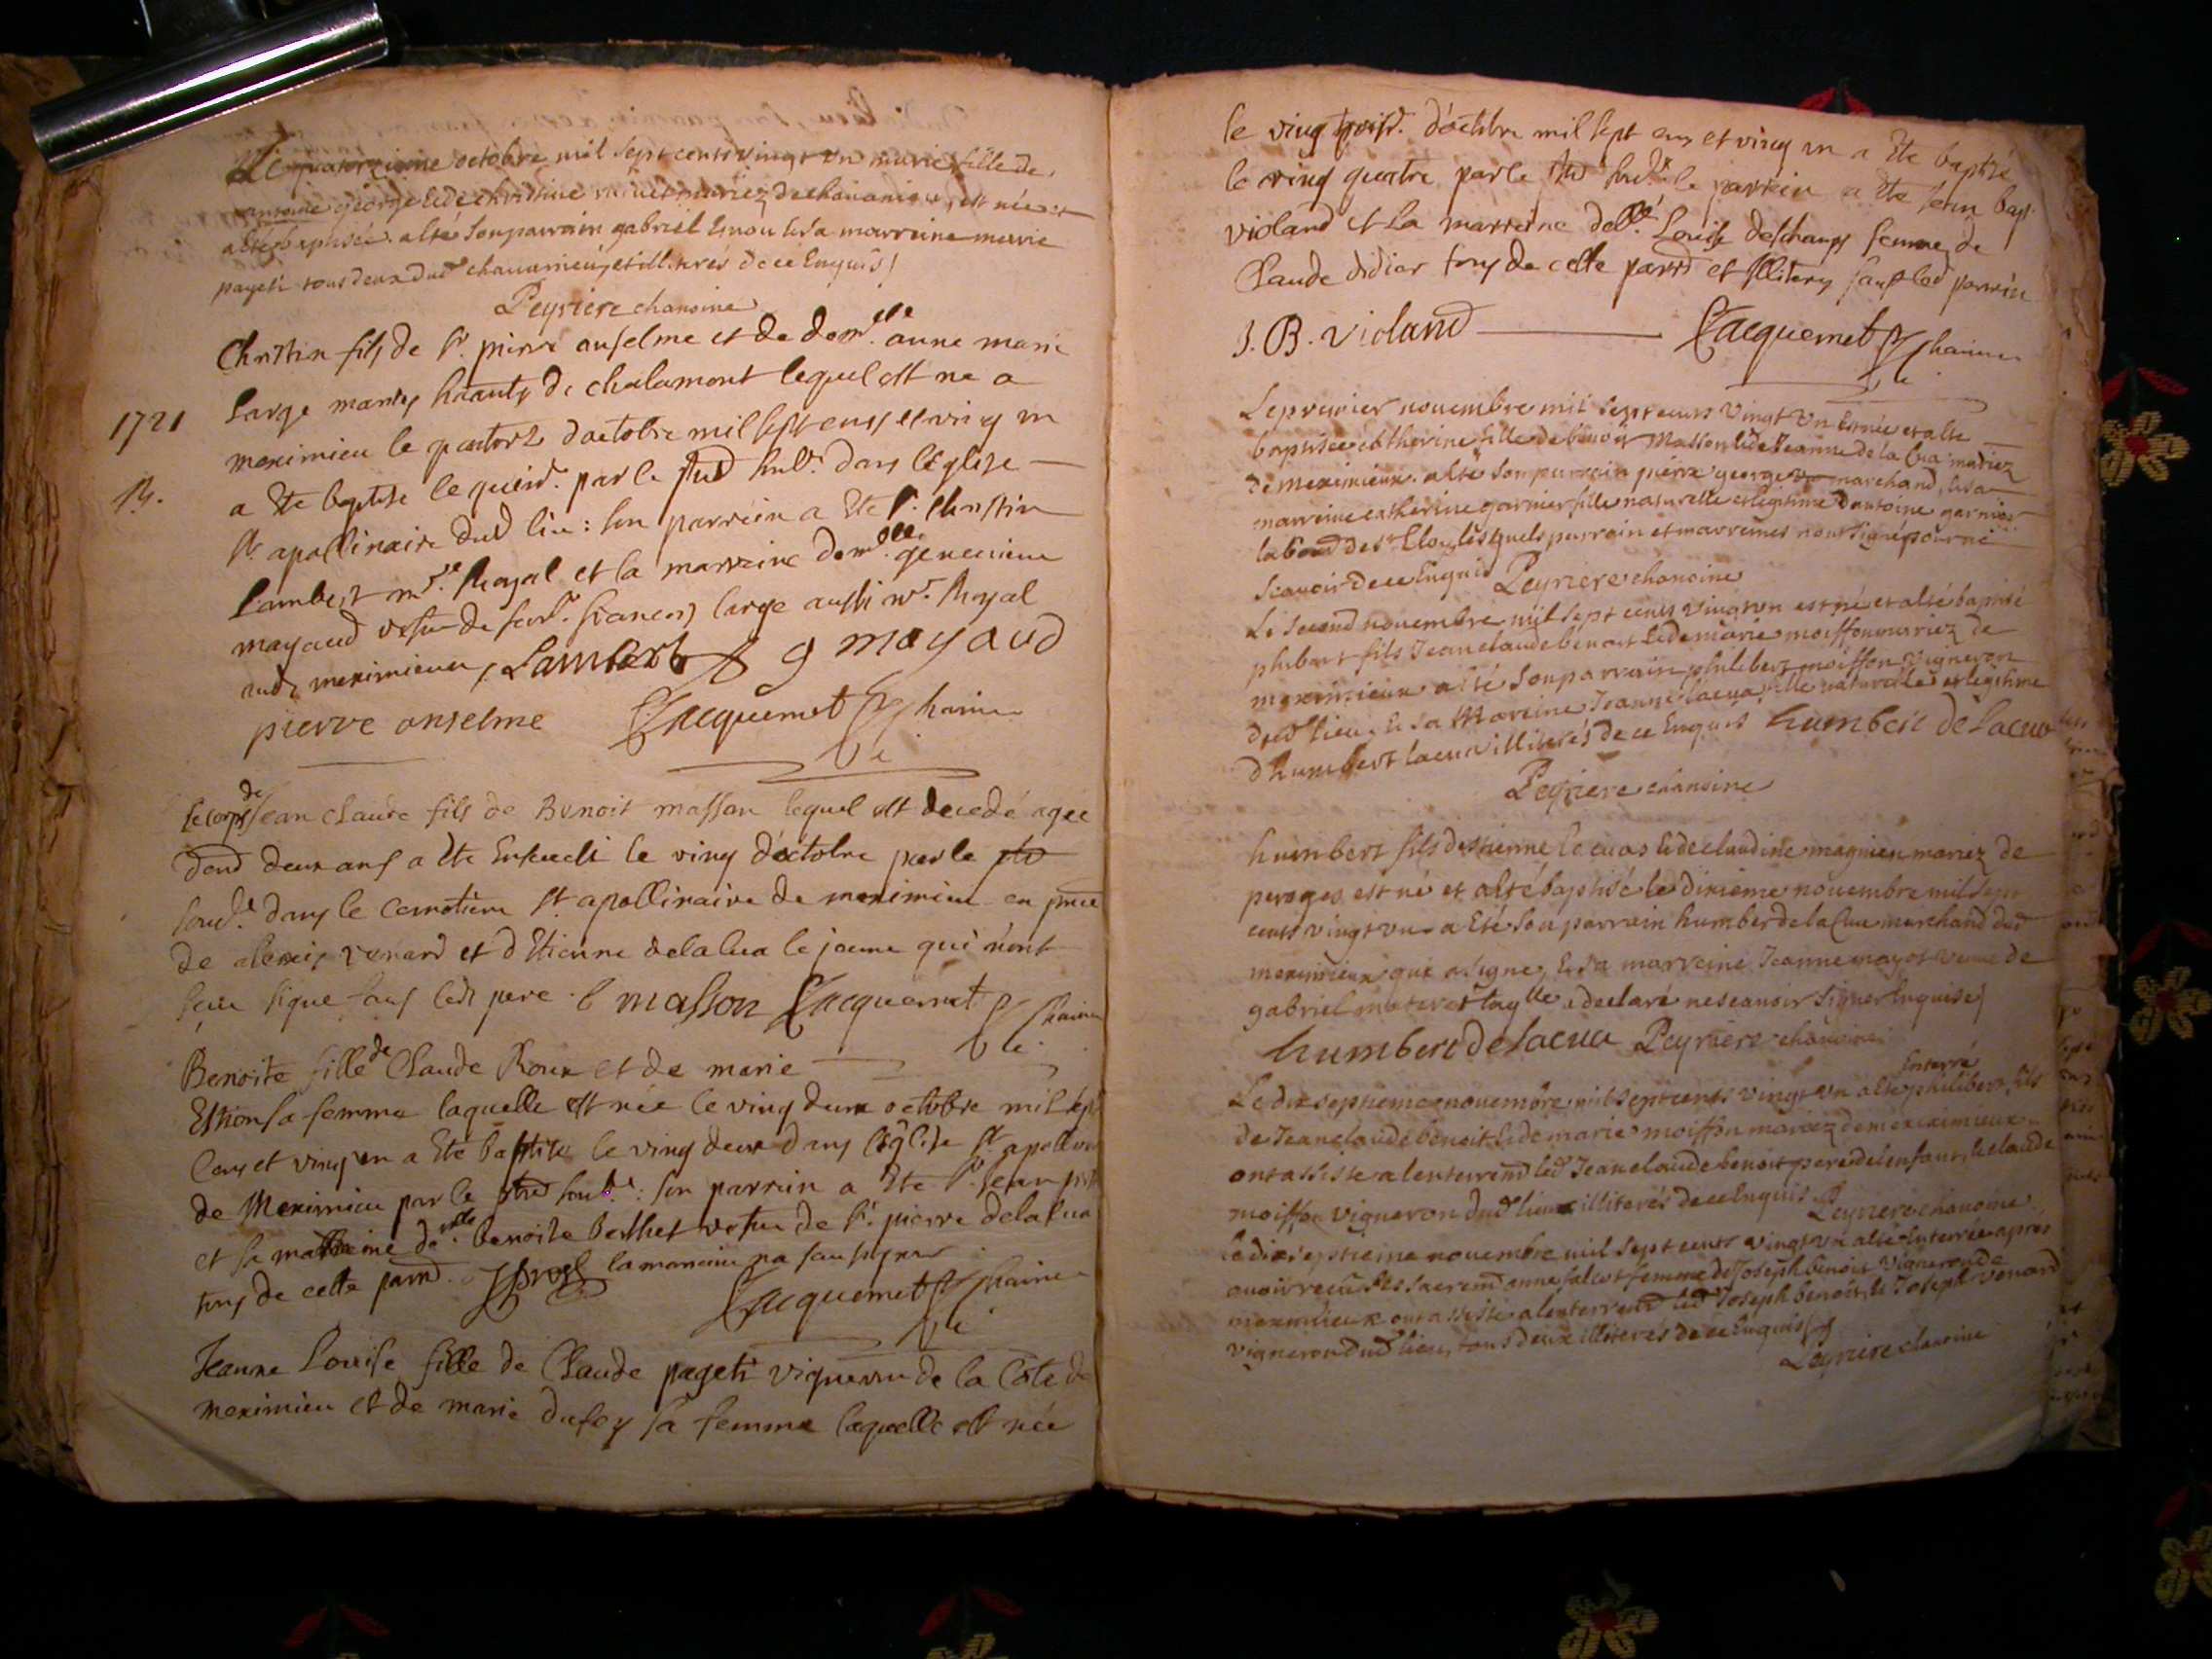 Le quatorzieme octobre mil sept cents vingt un marie fille de
antoine george & de christine mariez de chavanieu, est née et
a esté baptisée. a esté son parrain gabriel & sa marreine marie
payeti tous deux dud chavanieux, et illiterés de ce Enquis /
Peyriere chanoine
Christin fils de Sr. pierre anselme et de demlle. anne marie
large mariez hitants de chalamont lequel est ne a
1721
meximieu le quators d'octobre mil sept cens et ving un
a Ete baptise le quins. par le dans l'Eglise
B.
St apollinaire dud lieu : son parrein a Ete Sr. Christin
Lambert nre. Royal et la marreine demlle. genevieve
mayaud vefve de feu Sr. francois large aussi nr. Royal
aud. meximieux, Lambert g mayaud
pierre anselme Jacquemet Channe
Vi
de
Le corps Jean Claude fils de Benoit masson lequel est decedé agee
denv deux ans a Ete Enseveli le ving d'octobre par le
soub. dans le cemetiere St apollinaire de meximieu en pnce
de alexis venard et d'Etienne delalua le jeune qui n'ont
sceu signe sauf led. pere. b masson Jacquemet Channe
Vi.
Benoite fille de Claude Roux et de marie
Estion sa femme laquelle est née le ving deux octobre mil sept
Cens et ving un a Eté baptise le ving deux dans l'Eglise St apollin
de Meximieu par le soub. : son parrein a Ete Sr. Jean
et sa marreine delle. benoite berthet vefve de Sr. pierre delalua
tous de cette parred. la marreine na sceu signer
Jacquemet Channe
Vi
Jeanne Louise fille de Claude pageti vigneron de la Cote de
meximieu et de marie dufey sa femme laquelle est née
le ving trois. d'octobre mil sept cens et ving un a Ete baptisé
le ving quatre par le le parrein a Ete Jean bapt.
violand et la marreine delle. Louise deschamps femme de
Claude didier tous de cette parrd et Illiterez sauf led parrein
J. B. violand Jacquemet Channe
Vi.
Le premier novembre mil sept cents vingt un est née et a esté
baptisée catherine fille de benoit Masson & de Jeanne de la Cua mariez
de meximieux. a esté son parrain pierre george marchand, & sa
marreine catherine garnier fille naturelle et legitime d'antoine garnier
la boud de St Eloy, lesquels parrain et marreines n'ont signé pour ne
scavoir de ce Enquis Peyriere chanoine
Le second novembre mil sept cents vingt un est né et a esté baptisé
phibert fils Jean claude benoit & de marie moiffon mariez de
meximieux a esté son parrain philibert moiffon vigneron
dud lieu, & sa Marreine Jeanne lacua fille naturelle et legitime
d'humbert lacua illiterés de ce Enquis humbert de lacua
Peyriere chanoine
humbert fils d'estienne lecuas & de claudine magnien mariez de
peroges est né et a esté baptisé le dixieme novembre mil sept
cents vingt un a Eté son parrain humber de la Cua marchand dud
meximieux qui a signé, & sa marreine Jeanne mayot veuve de
gabriel laqlle a declaré ne scavoir signer Enquise /
humbert de lacua Peyriere chanoine
Enterré
Le dix septieme novembre mil sept cents vingt un a esté philibert fils
de Jean claude benoit & de marie moiffon mariez de meximieux
ont assisté a l'enterremt led Jean claude benoit pere de l'enfant, & claude
moiffon vigneron dud lieu illiterés de ce Enquis Peyriere chanoine
le dix septieme novembre mil sept cents vingt un a esté Enterrée apres
avoir receu ses sacremt anne falcot femme de Joseph benoit vigneron de
meximieux ont assisté a l'enterremt led Joseph benoit, & Joseph venard
vigneron dud lieu, tous deux illiterés de ce Enquis
Peyriere chanoine